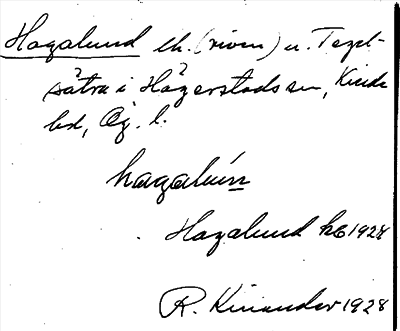 Hagalund lh. (riven) u. Tegel-
sätra i Hägerstads sn, Kinda
hd, Ög. l.
hagalún
Hagalund hE 1928
R. Kinander 1928